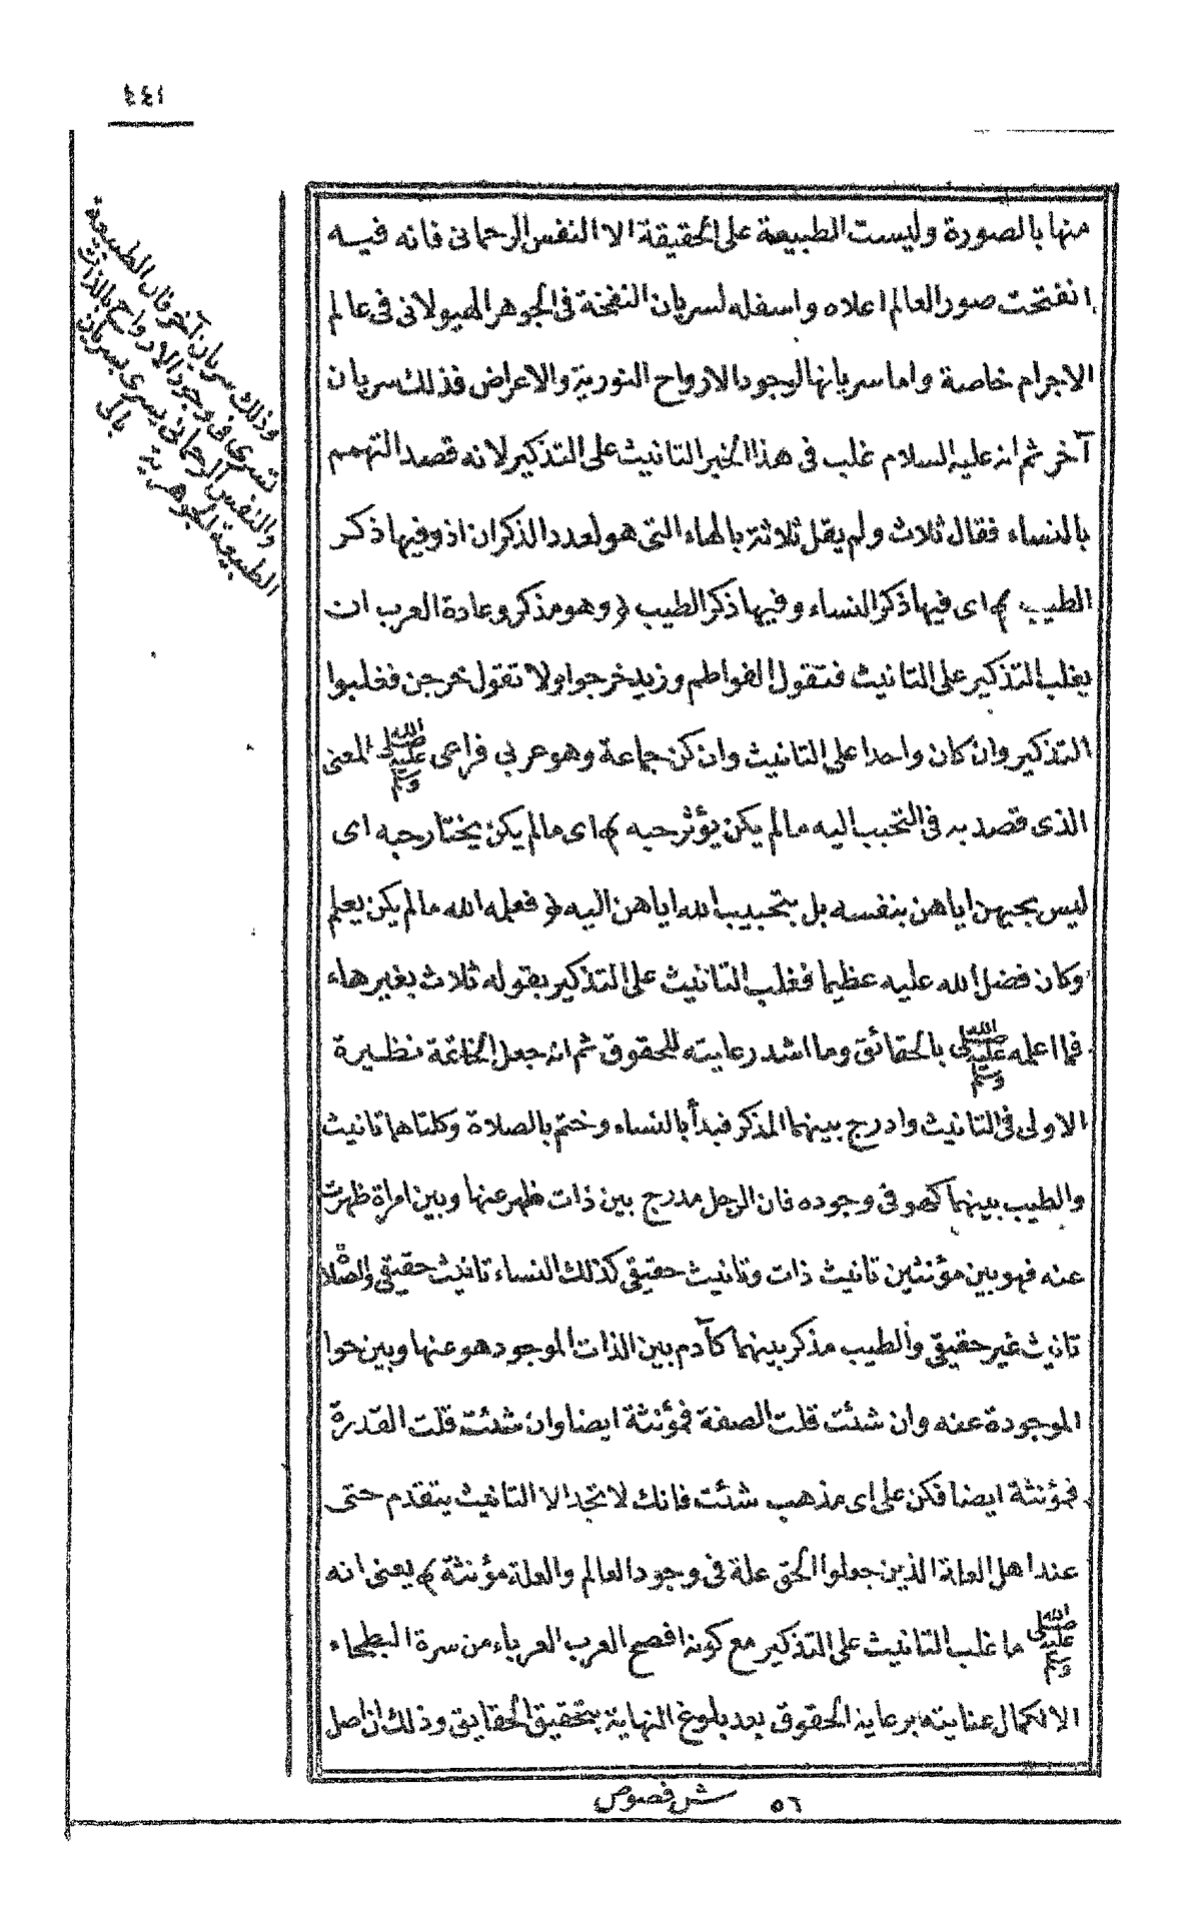 ٤٤١
منها بالصورة وليست الطبيعة على الحقيقة الا النفس الرحمانى فانه فيه
انفتحت صور العالم اعلاه واسفله لسريان النفخة فى الجوهر الهيولانى فى عالم
الاجرام خاصة واما سريانها لوجود الارواح النورية والاعراض فذلك سريان
آخر ثم انه عليه السلام غلب فى هذا الخبر التانيث على التذكير لانه قصد التهمم
بالنساء فقال ثلاث ولم يقل ثلاثة بالهاء التى هو لعدد الذكران اذ وفيها ذكر
الطيب ﴾ اى فيها ذكر النساء وفيها ذكر الطيب ﴿ وهو مذكر وعادة العرب ان
يغلب التذكير على التانيث فتقول الفواطم وزيد خرجوا ولا تقول خرجن فغلبوا
التذكير وان كان واحدا على التانيث وان كن جماعة وهو عربي فراعى صلى الله عليه وسلم المعنى
الذى قصد به فى التحبب اليه مالم يكن يؤثر حبه ﴾ اى مالم يكن يختار حبه اى
ليس بحبهن اياهن بنفسه بل بتحبيب الله اياهن اليه ﴿ فعلمه الله مالم يكن يعلم
وكان فضل الله عليه عظيما فغلب التانيث على التذكير بقوله ثلاث بغير هاء
فما اعلمه صلى الله عليه وسلم بالحقائق وما اشد رعايته للحقوق ثم انه جعل الخاتمة نظيرة
الاولى فى التانيث وادرج بينهما المذكر فبدأ بالنساء وختم بالصلاة وكلتاهما تانيث
والطيب بينهما كهو فى وجوده فان الرجل مدرج بين ذات ظهر عنها وبين امراة ظهرت
عنه فهو بين مؤنثين تانيث ذات وتانيث حقيقى كذلك النساء تانيث حقيقى والصلاة
تانيث غير حقيقى والطيب مذكر بينهما كآدم بين الذات الموجود هو عنها وبين حوا
الموجودة عنه وان شئت قلت الصفة فمؤنثة ايضا وان شئت قلت القدرة
فمؤنثة ايضا فكن على اى مذهب شئت فانك لا تجد الا التانيث يتقدم حتى
عند اهل العلة الذين جعلوا الحق علة فى وجود العالم والعلة مؤنثة ﴾ يعنى انه
صلى الله عليه وسلم ما غلب التانيث على التذكير مع كونه افصح العرب العرباء من سرة البطحاء
الا لكمال عنايته برعاية الحقوق بعد بلوغ النهاية بتحقيق الحقايق وذلك ان اصل
وذلك سريان آخر فان الطبيعة
تسرى فى وجود الارواح بالذات
والنفس الرحمانى يسرى بسريان
الطبيعة الجوهرية
بالى
٥٦ ش فصوص